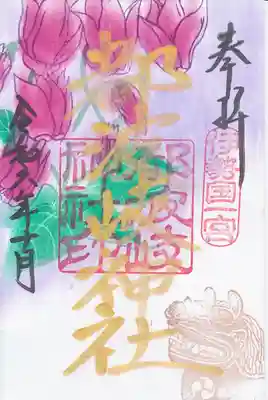 奉拝
伊勢国一宮
都波岐神社
都波岐
令和六年十一月